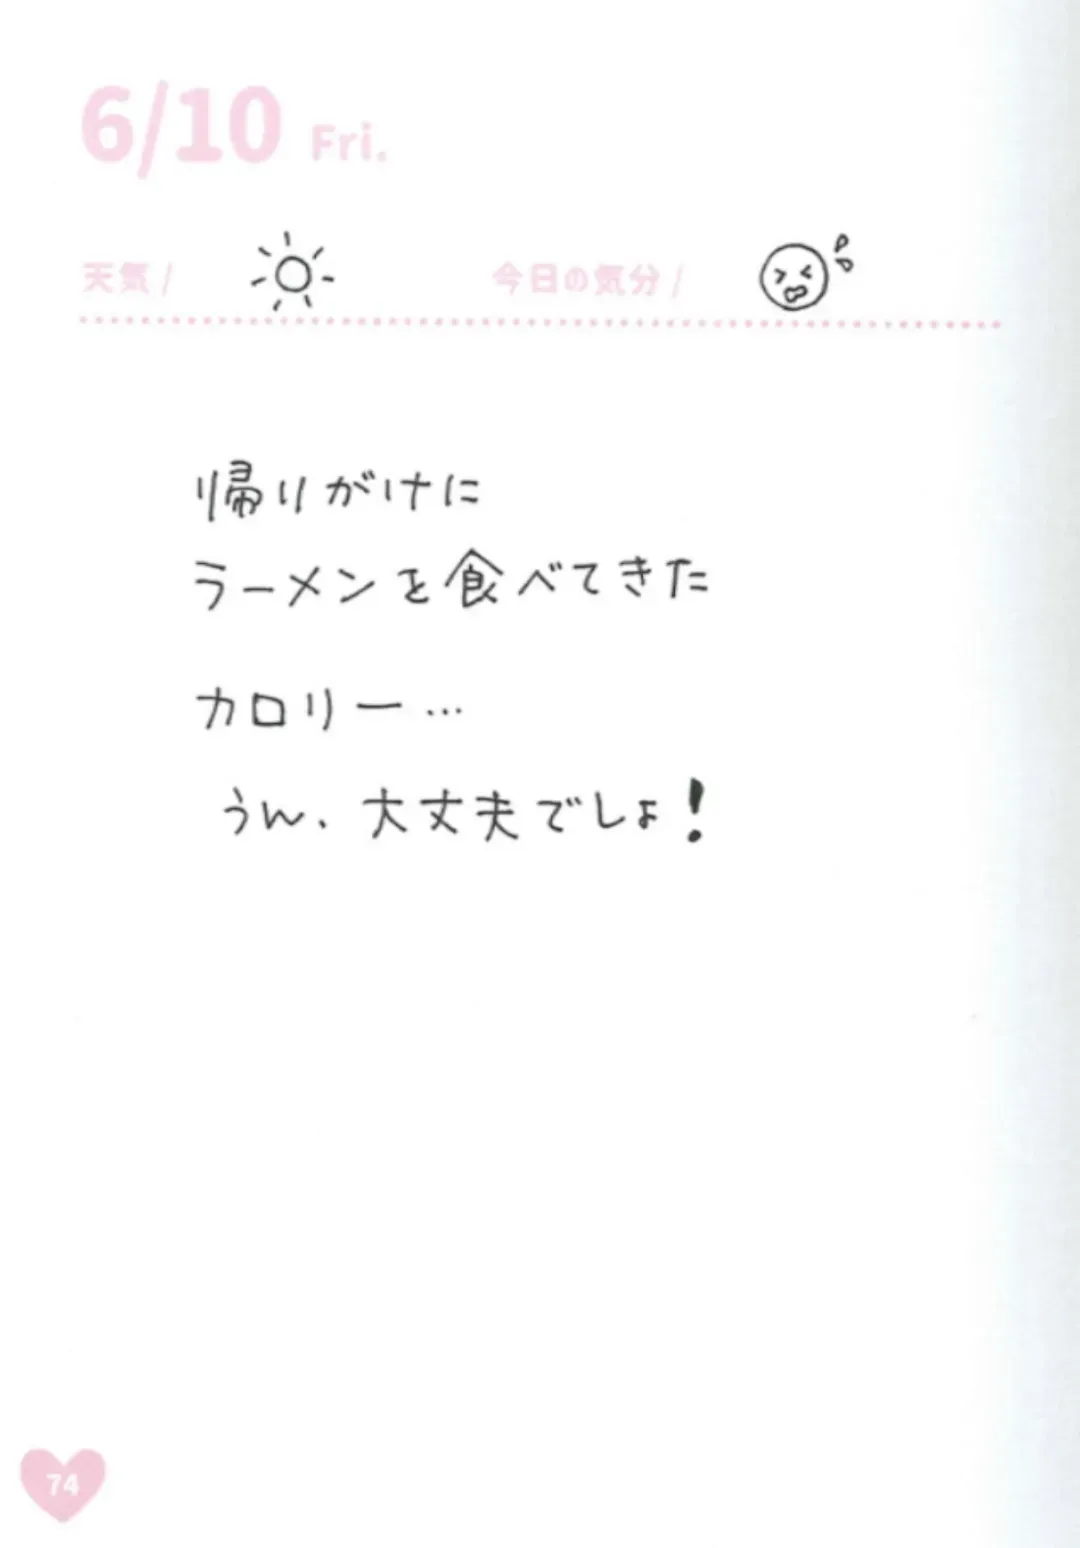 6/10 Fri.
天気/ 今日の気分/
帰りがけに
ラーメンを食べてきた
カロリー…
うん、大丈夫でしょ!
74